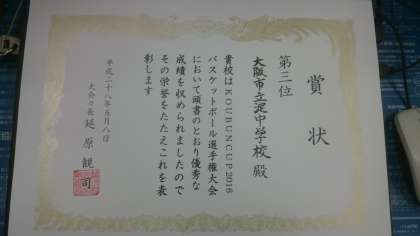 賞状
第三位
大阪市立淀中学校殿
貴校はKOUBUNCUP2016
バスケットボール選手権大会
において頭書のとおり優秀な
成績を収められましたので
その栄誉をたたえこれを表
彰します
平成二十八年五月八日
大会々長 延原観司